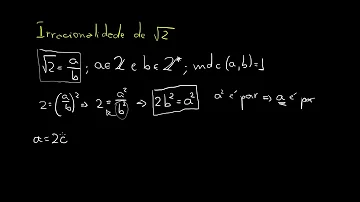 Irracionalidade de √2
√2 = a/b ; a∈ℤ e b∈ℤ* ; mdc(a,b)=1
2=(a/b)² ⇒ 2 = a²/b² ⇒ 2b²=a² a² é par ⇒ a é par
a=2c